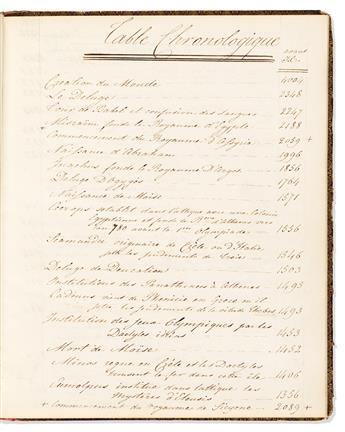 Table Chronologique
avant
J.C.
Création du Monde 4004
Le Déluge 2348
Tour de Babel et confusion des langues 2247
+ Misraïm fonde le Royaume d'Egypte 2188
Commencement du Royaume d'Assyrie 2059 +
Naissance d'Abraham 1996
Inachus fonde le Royaume d'Argos 1856
Déluge d'Ogygès 1764
Naissance de Moïse 1571
Cécrops établit dans l'attique avec une Colonie
Egyptienne et fonde le Rme d'Athènes vers
l'an 780 avant la 1ere Olympiade 1556
Scamandre originaire de Crète ou d'Italie
jette les fondements de Troie 1546
Déluge de Deucalion 1503
Institutions des Panathénées à Athènes 1495
Cadmus vient de Phénicie en Grèce où il
jette les fondements de la ville de Thèbes 1493
Institution des Jeux Olympiques par les
Dactyles idéens 1453
Mort de Moïse 1452
Minos règne en Crète et les Dactyles
trouvent le fer dans cette île 1406
Eumolpus institue dans l'attique les
Mystères d'Eleusis 1356
+ Commencement du royaume de Sicyone 2089 +